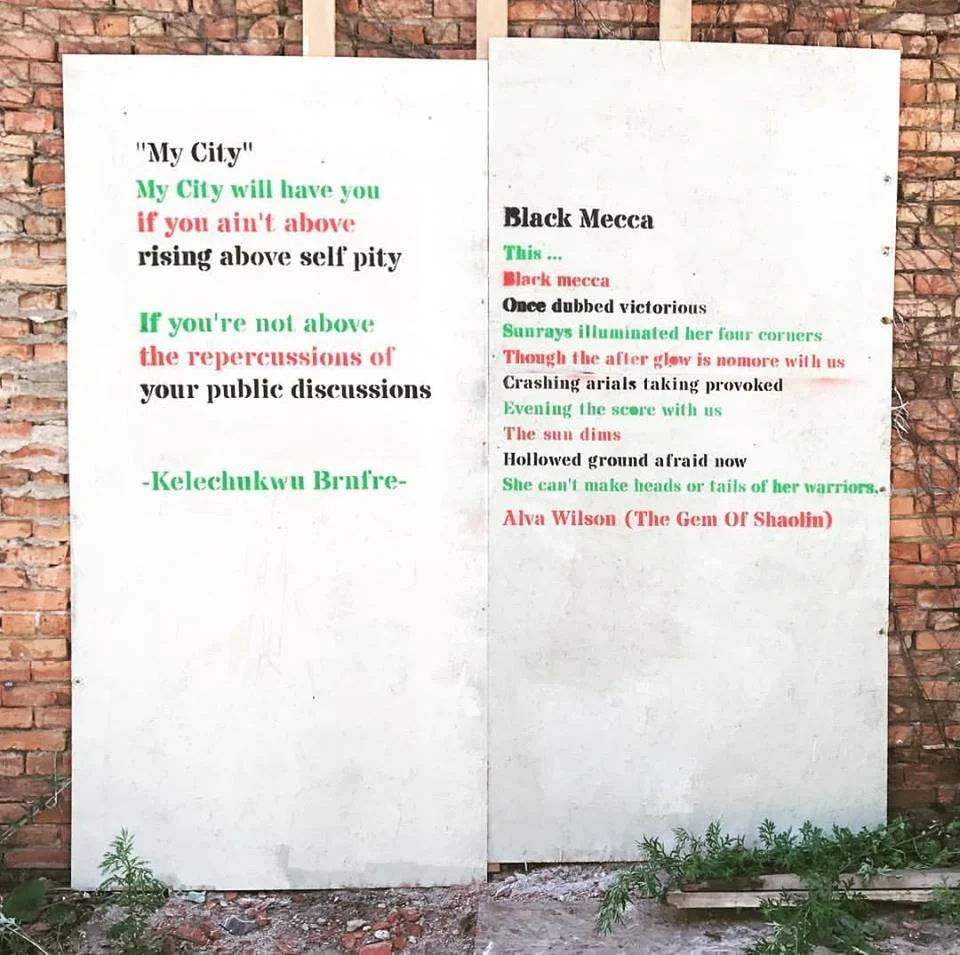 "My City"
My City will have you
if you ain't above
rising above self pity
If you're not above
the repercussions of
your public discussions
-Kelechukwu Brnfre-
Black Mecca
This ...
Black mecca
Once dubbed victorious
Sunrays illuminated her four corners
Though the after glow is nomore with us
Crashing arials taking provoked
Evening the score with us
The sun dims
Hollowed ground afraid now
She can't make heads or tails of her warriors.
Alva Wilson (The Gem Of Shaolin)